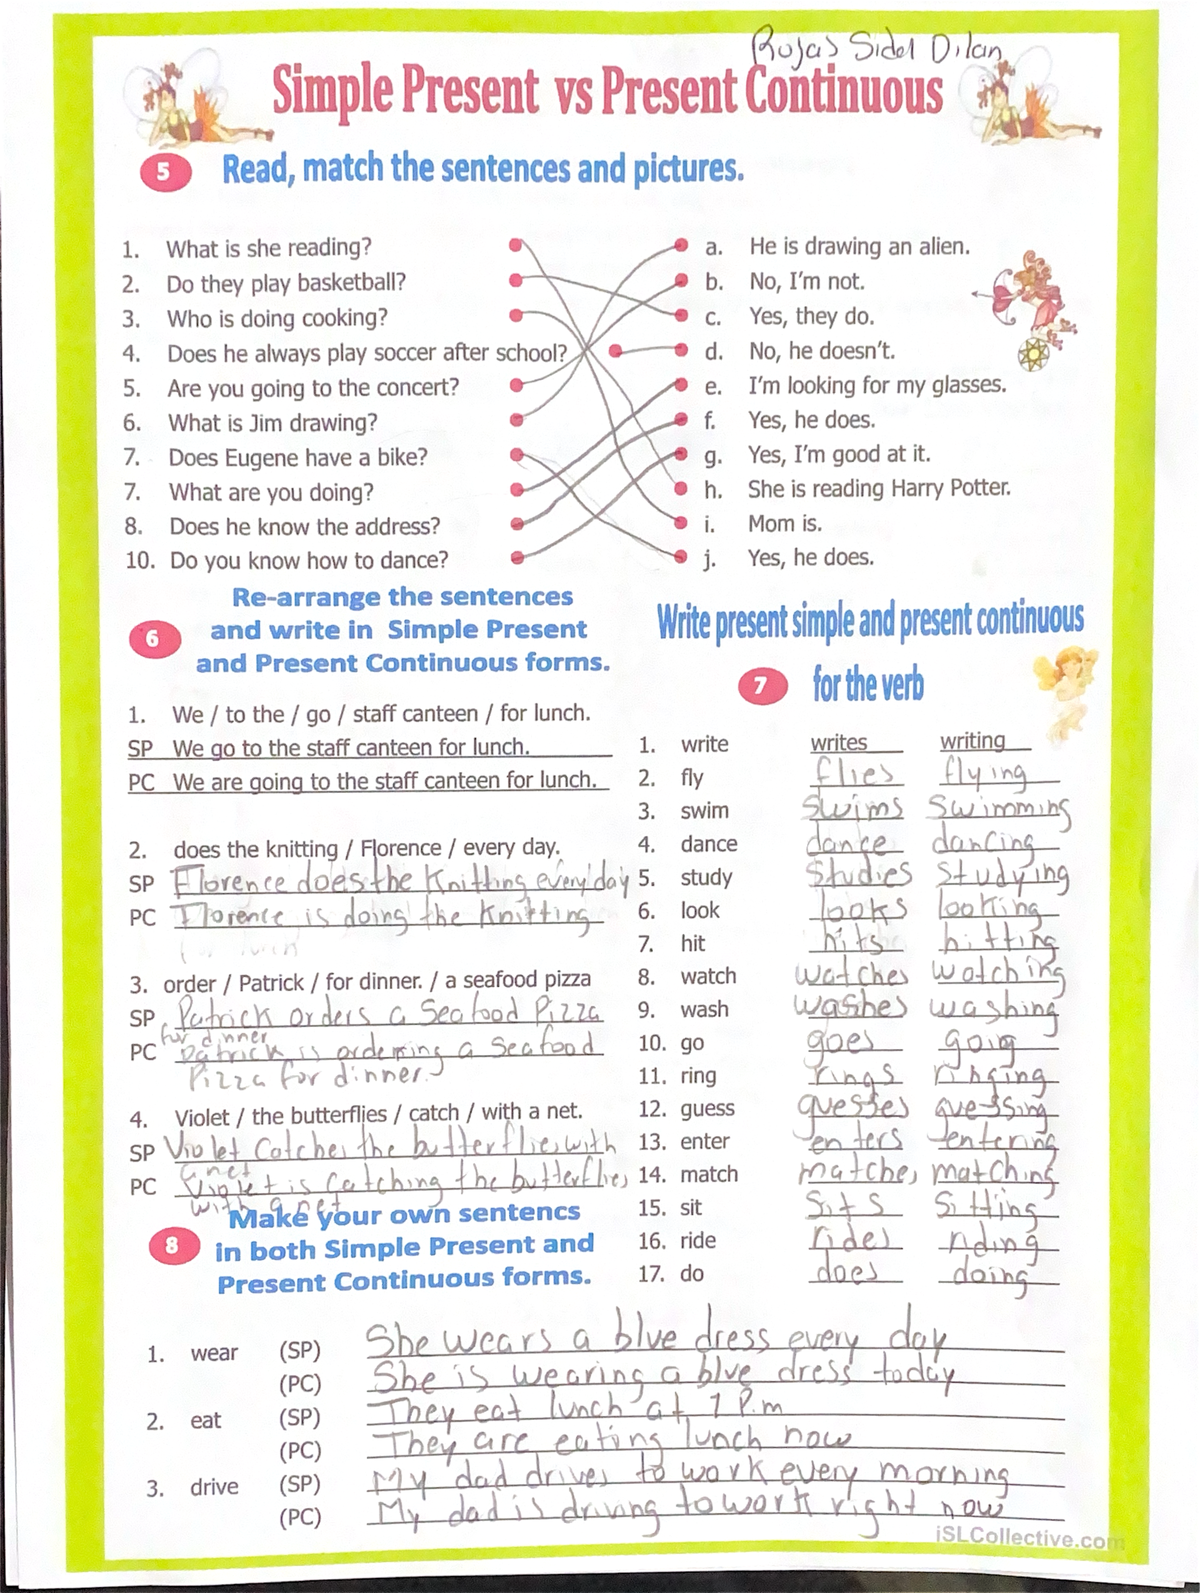 Rojas Sidel Dilan
Simple Present vs Present Continuous
5 Read, match the sentences and pictures.
1. What is she reading? a. He is drawing an alien.
2. Do they play basketball? b. No, I'm not.
3. Who is doing cooking? c. Yes, they do.
4. Does he always play soccer after school? d. No, he doesn't.
5. Are you going to the concert? e. I'm looking for my glasses.
6. What is Jim drawing? f. Yes, he does.
7. Does Eugene have a bike? g. Yes, I'm good at it.
7. What are you doing? h. She is reading Harry Potter.
8. Does he know the address? i. Mom is.
10. Do you know how to dance? j. Yes, he does.
6 Re-arrange the sentences
and write in Simple Present
and Present Continuous forms.
1. We / to the / go / staff canteen / for lunch.
SP We go to the staff canteen for lunch.
PC We are going to the staff canteen for lunch.
2. does the knitting / Florence / every day.
SP Florence does the Knitting every day
PC Florence is doing the Knitting
3. order / Patrick / for dinner. / a seafood pizza
SP Patrick orders a Seafood Pizza
for dinner
PC Patrick is ordering a Seafood
Pizza for dinner.
4. Violet / the butterflies / catch / with a net.
SP Violet Catches the butterflies with
a net
PC Violet is Catching the butterflies
with a net
Write present simple and present continuous
7 for the verb
1. write writes writing
2. fly flies flying
3. swim swims swimming
4. dance dance dancing
5. study studies studying
6. look looks looking
7. hit hits hitting
8. watch watches watching
9. wash washes washing
10. go goes going
11. ring rings ringing
12. guess guesses guessing
13. enter enters entering
14. match matches matching
15. sit sits sitting
16. ride rides riding
17. do does doing
8 Make your own sentencs
in both Simple Present and
Present Continuous forms.
1. wear (SP) She wears a blue dress every day
(PC) She is wearing a blue dress today
2. eat (SP) They eat lunch at 1 P.m
(PC) They are eating lunch now
3. drive (SP) My dad drives to work every morning
(PC) My dad is driving to work right now
iSLCollective.com